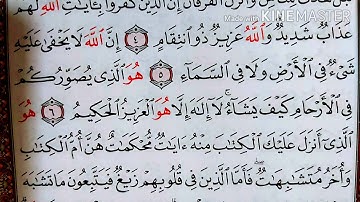 قبل هدى للناس وأنزل الفرقان إن الذين كفروا بـٔايـت الله لهم
Made with KINEMASTER
عَذَابٌ شَدِيدٌ وَاللَّهُ عَزِيزٌ ذُو انتِقَامٍ ٤ إِنَّ اللَّهَ لَا يَخْفَى عَلَيْهِ
شَيْءٌ فِي الْأَرْضِ وَلَا فِي السَّمَاءِ ٥ هُوَ الَّذِي يُصَوِّرُكُمْ
فِي الْأَرْحَامِ كَيْفَ يَشَاءُ لَا إِلَهَ إِلَّا هُوَ الْعَزِيزُ الْحَكِيمُ ٦ هُوَ
الَّذِي أَنزَلَ عَلَيْكَ الْكِتَابَ مِنْهُ ءَايَاتٌ مُّحْكَمَاتٌ هُنَّ أُمُّ الْكِتَابِ
وَأُخَرُ مُتَشَابِهَاتٌ فَأَمَّا الَّذِينَ فِي قُلُوبِهِمْ زَيْغٌ فَيَتَّبِعُونَ مَا تَشَابَهَ